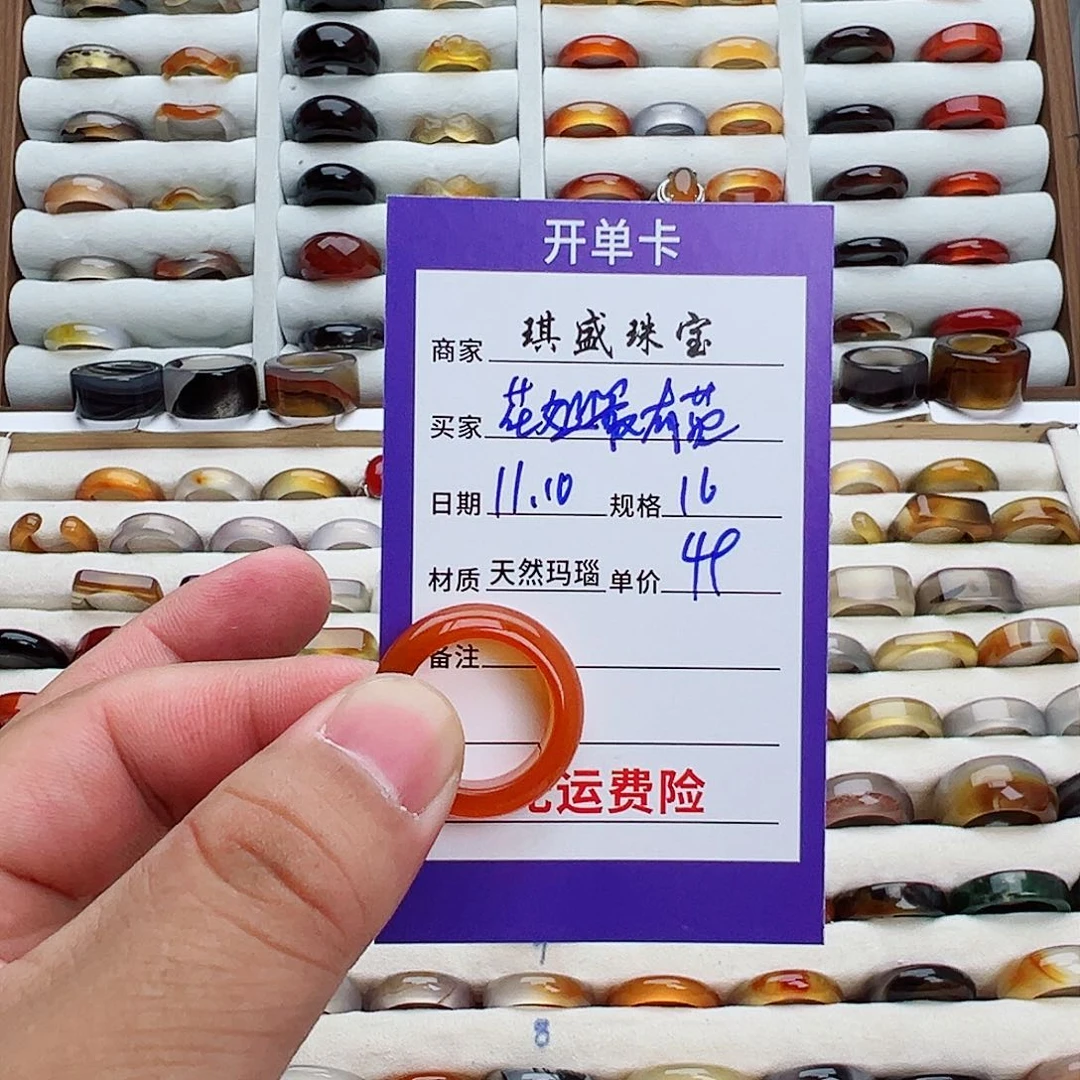 开单卡
商家 琪盛珠宝
买家 花姐最有范
日期 11.10 规格 16
材质 天然玛瑙 单价 49
备注
运费险
7
8